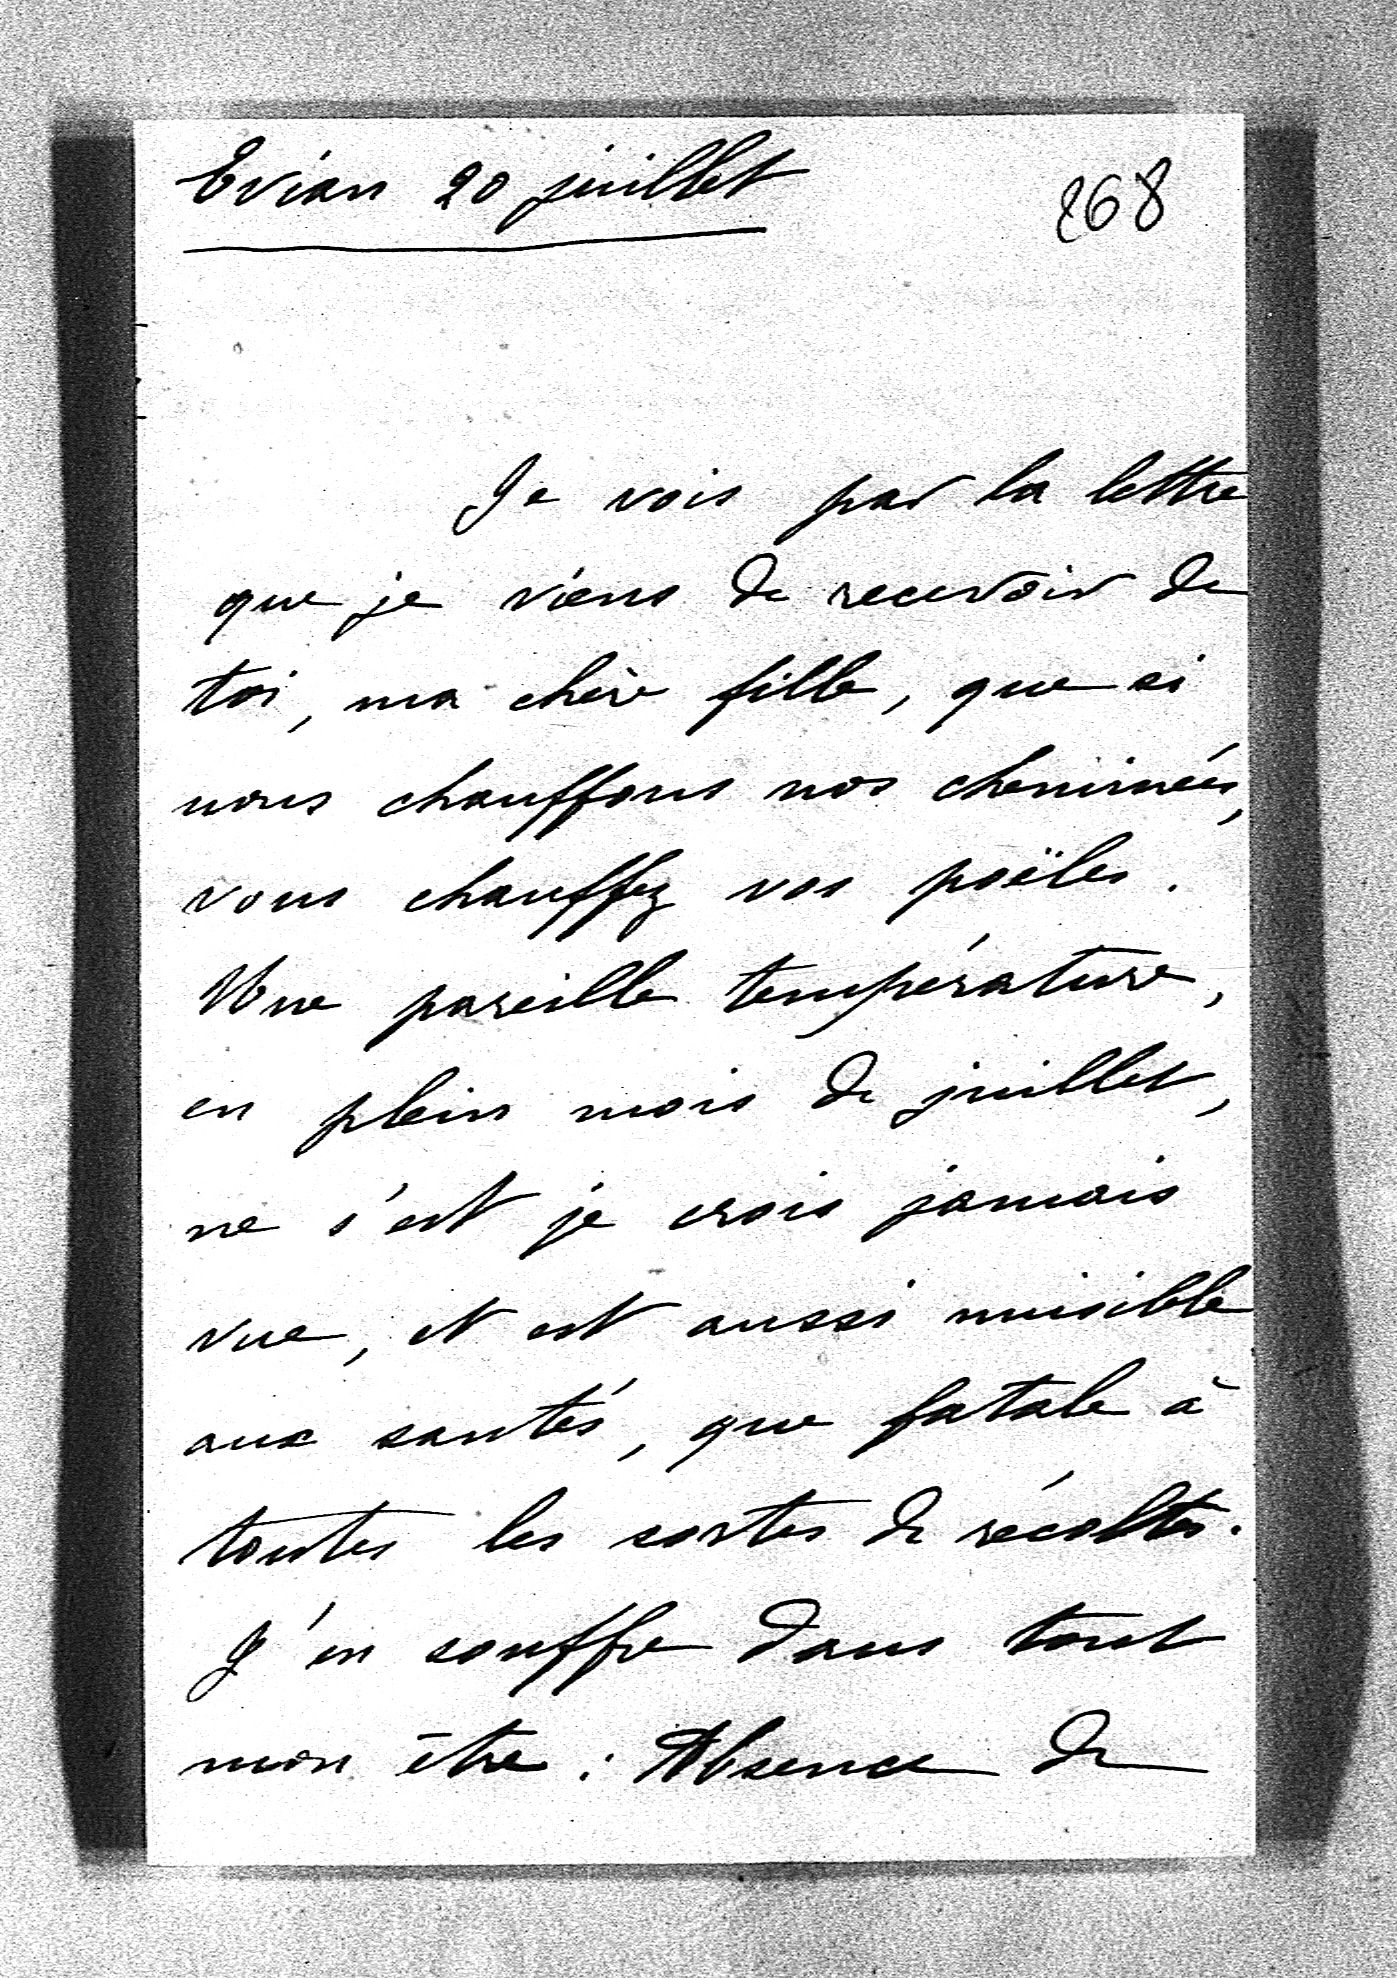 Evian 20 juillet
268
Je vois par la lettre
que je viens de recevoir de
toi, ma chère fille, que si
nous chauffons nos cheminées,
vous chauffez vos poëles.
Une pareille température,
en plein mois de juillet,
ne s'est je crois jamais
vue, et est aussi nuisible
aux santés, que fatale à
toutes les sortes de récoltes.
J'en souffre dans tout
mon être : Absence de